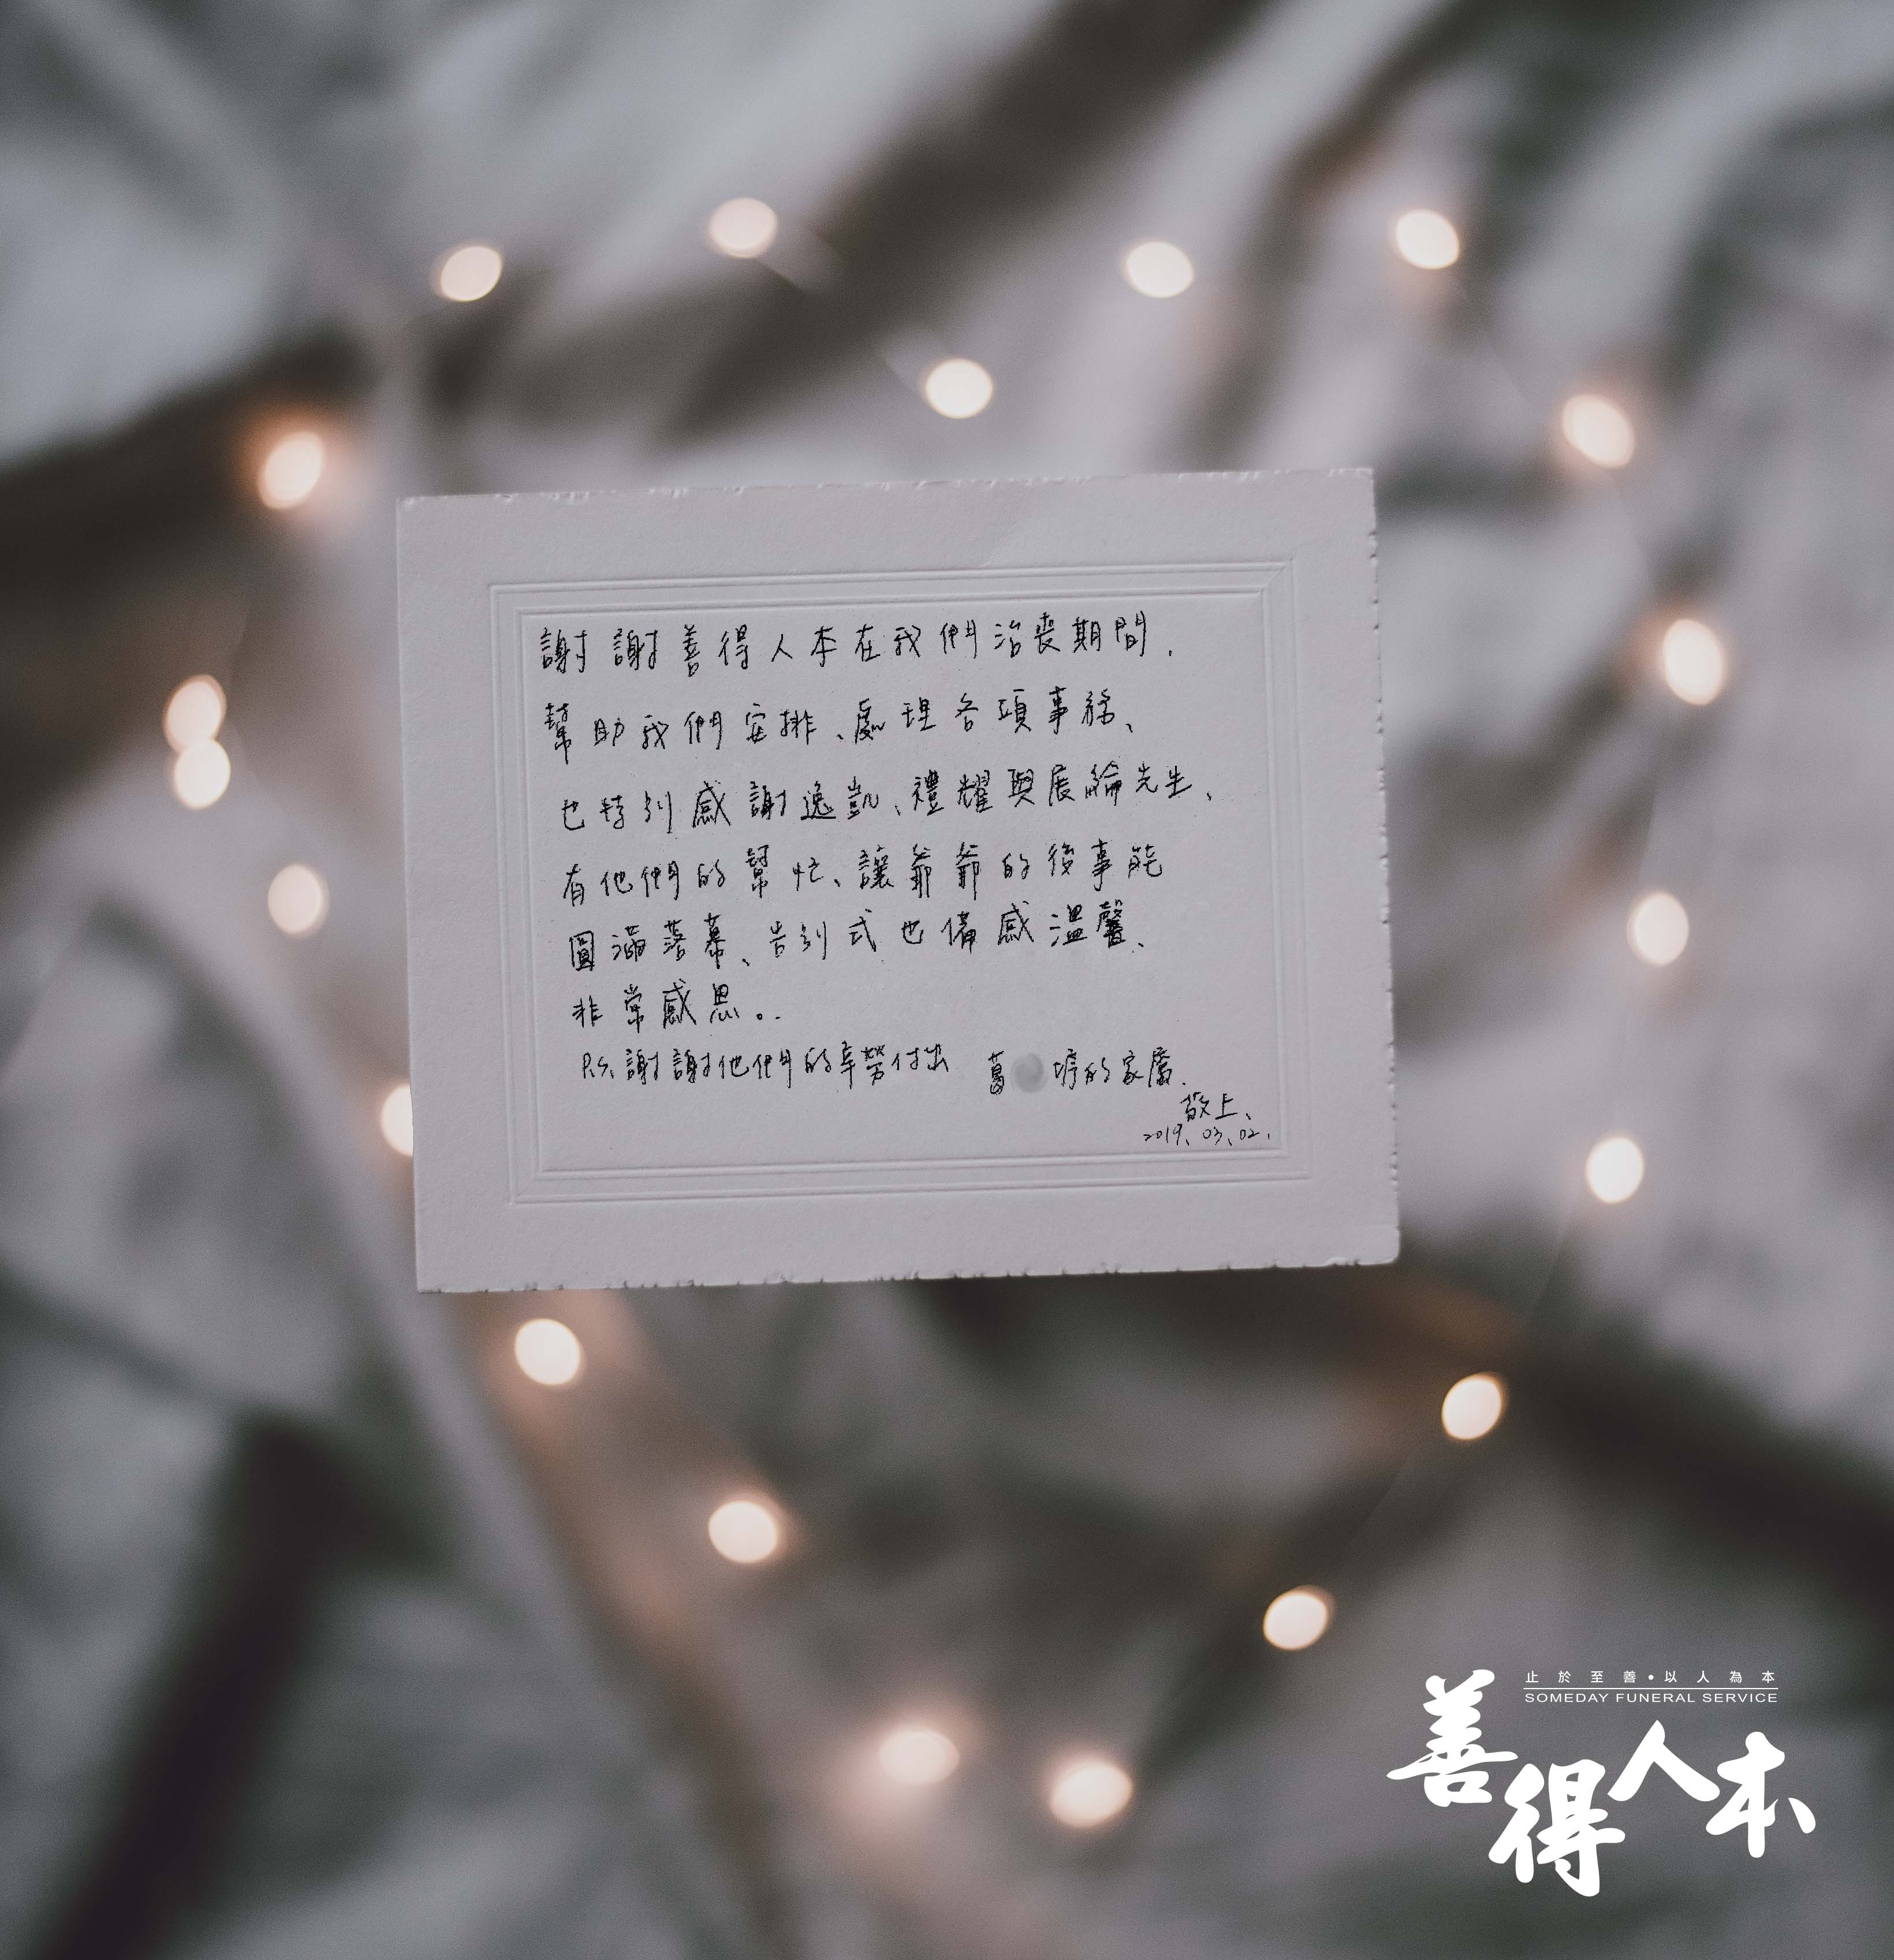 謝謝善得人本在我們治喪期間,
幫助我們安排、處理各項事務、
也特別感謝逸凱、禮耀與展綸先生、
有他們的幫忙、讓爺爺的後事能
圓滿落幕、告別式也備感溫馨、
非常感恩。
P.S. 謝謝他們的辛勞付出 葛 的家屬.
敬上、
2019. 03. 02.
止於至善•以人為本
SOMEDAY FUNERAL SERVICE
善得人本